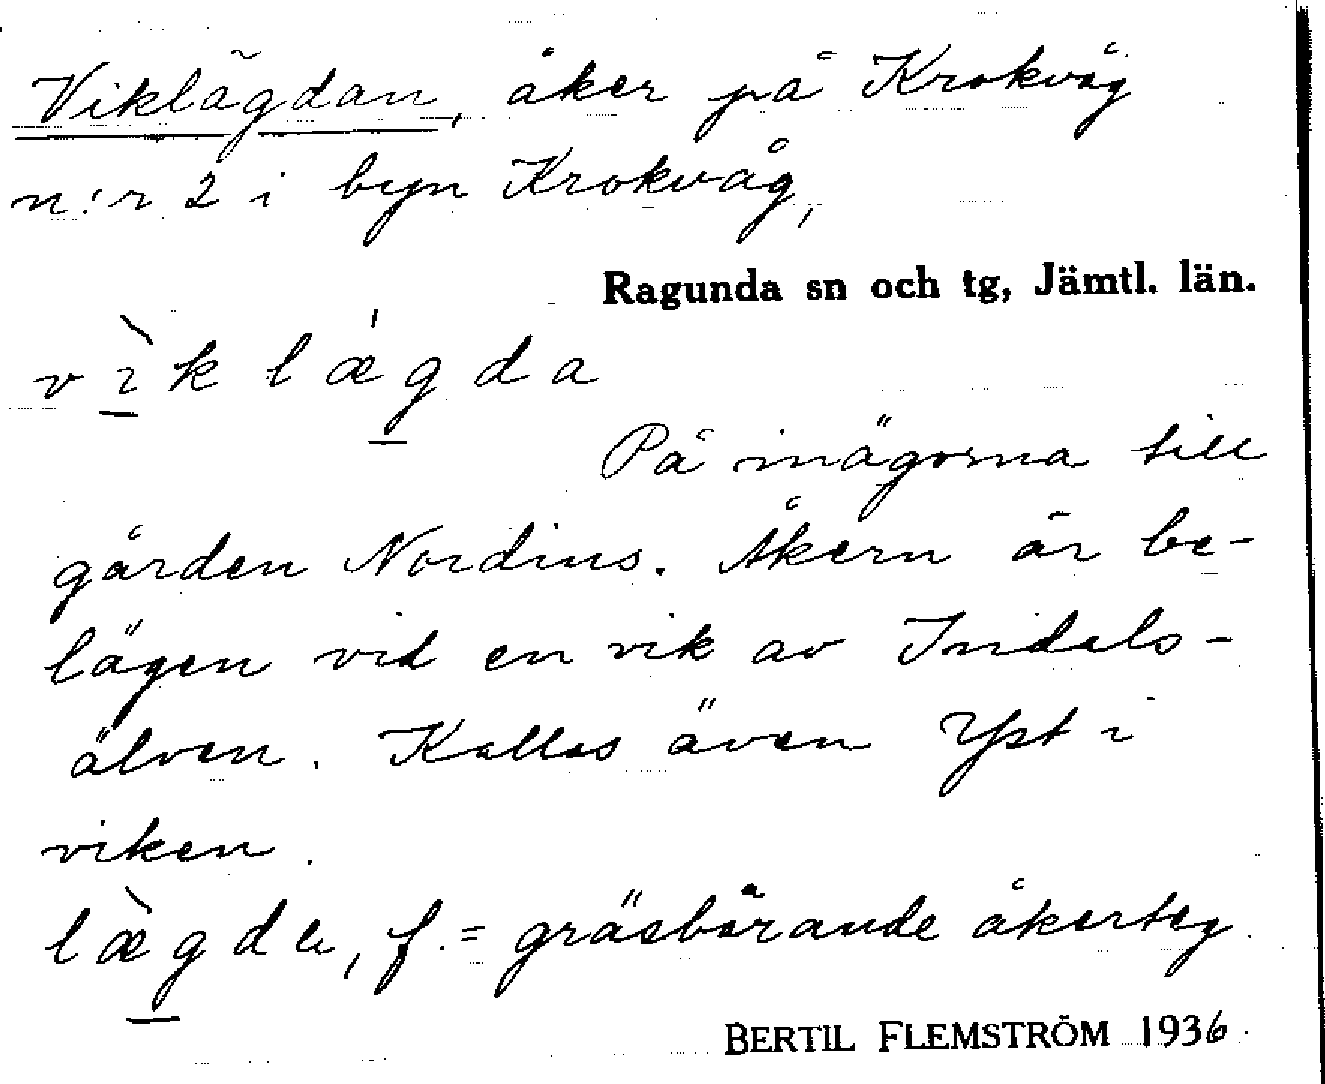 Viklägdan, åker på Krokvåg
n:r 2 i byn Krokvåg,
Ragunda sn och tg, Jämtl. län.
vìklǽgda
På inägorna till
gården Nordins. Åkern är be-
lägen vid en vik av Indals-
älven. Kallas även Yst i
viken.
læ̀gde, f. = gräsbärande åkerteg.
BERTIL FLEMSTRÖM 1936